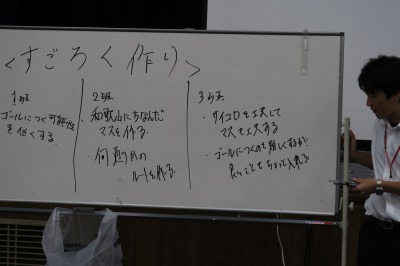 ＜すごろく作り＞
1班
ゴールにつく可能性
を低くする
2班
・和歌山にちなんだ
マスを作る.
・何通りかの
ルートを作る.
3班
・サイコロを工夫して
マスを工夫する
・ゴールにつくのを難しくするが!
良いこともちょっと入れる